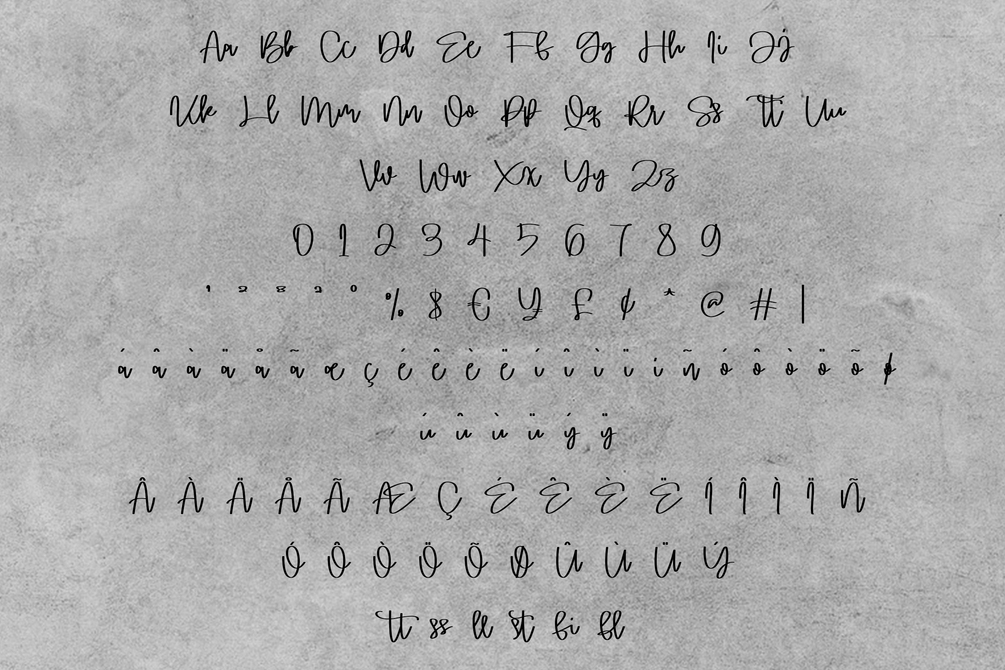 Aa Bb Cc Dd Ee Ff Gg Hh Ii Jj
Kk Ll Mm Nn Oo Pp Qq Rr Ss Tt Uu
Vv Ww Xx Yy Zz
0 1 2 3 4 5 6 7 8 9
¹ ² ³ ° % $ € ¥ £ ¢ * @ # |
á â à ä å ã æ ç é ê è ë í î ì ï i ñ ó ô ò ö õ ø
ú û ù ü ý ÿ
Â À Ä Å Ã Æ Ç É Ê È Ë Í Î Ì Ï Ñ
Ó Ô Ò Ö Õ Ø Û Ù Ü Ý
tt ss ll st fi fl